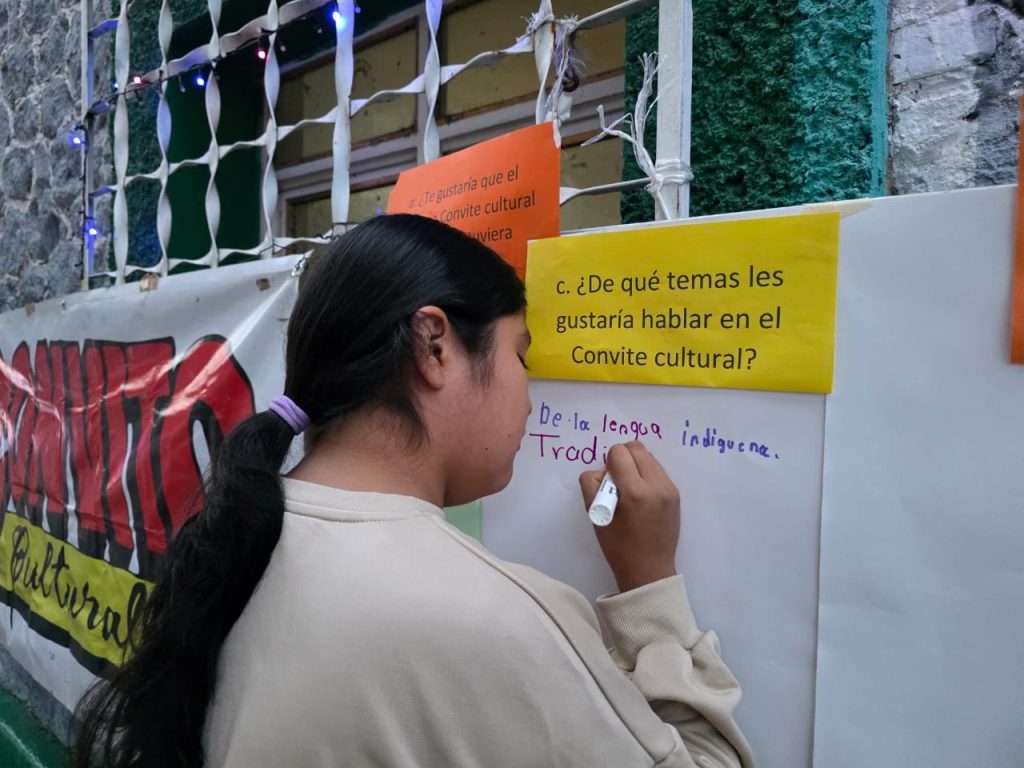 a: ¿Te gustaría que el
Convite cultural
uviera
c. ¿De qué temas les
gustaría hablar en el
Convite cultural?
De la lengua indiguena.
Tradi
CONVITO
Cultural